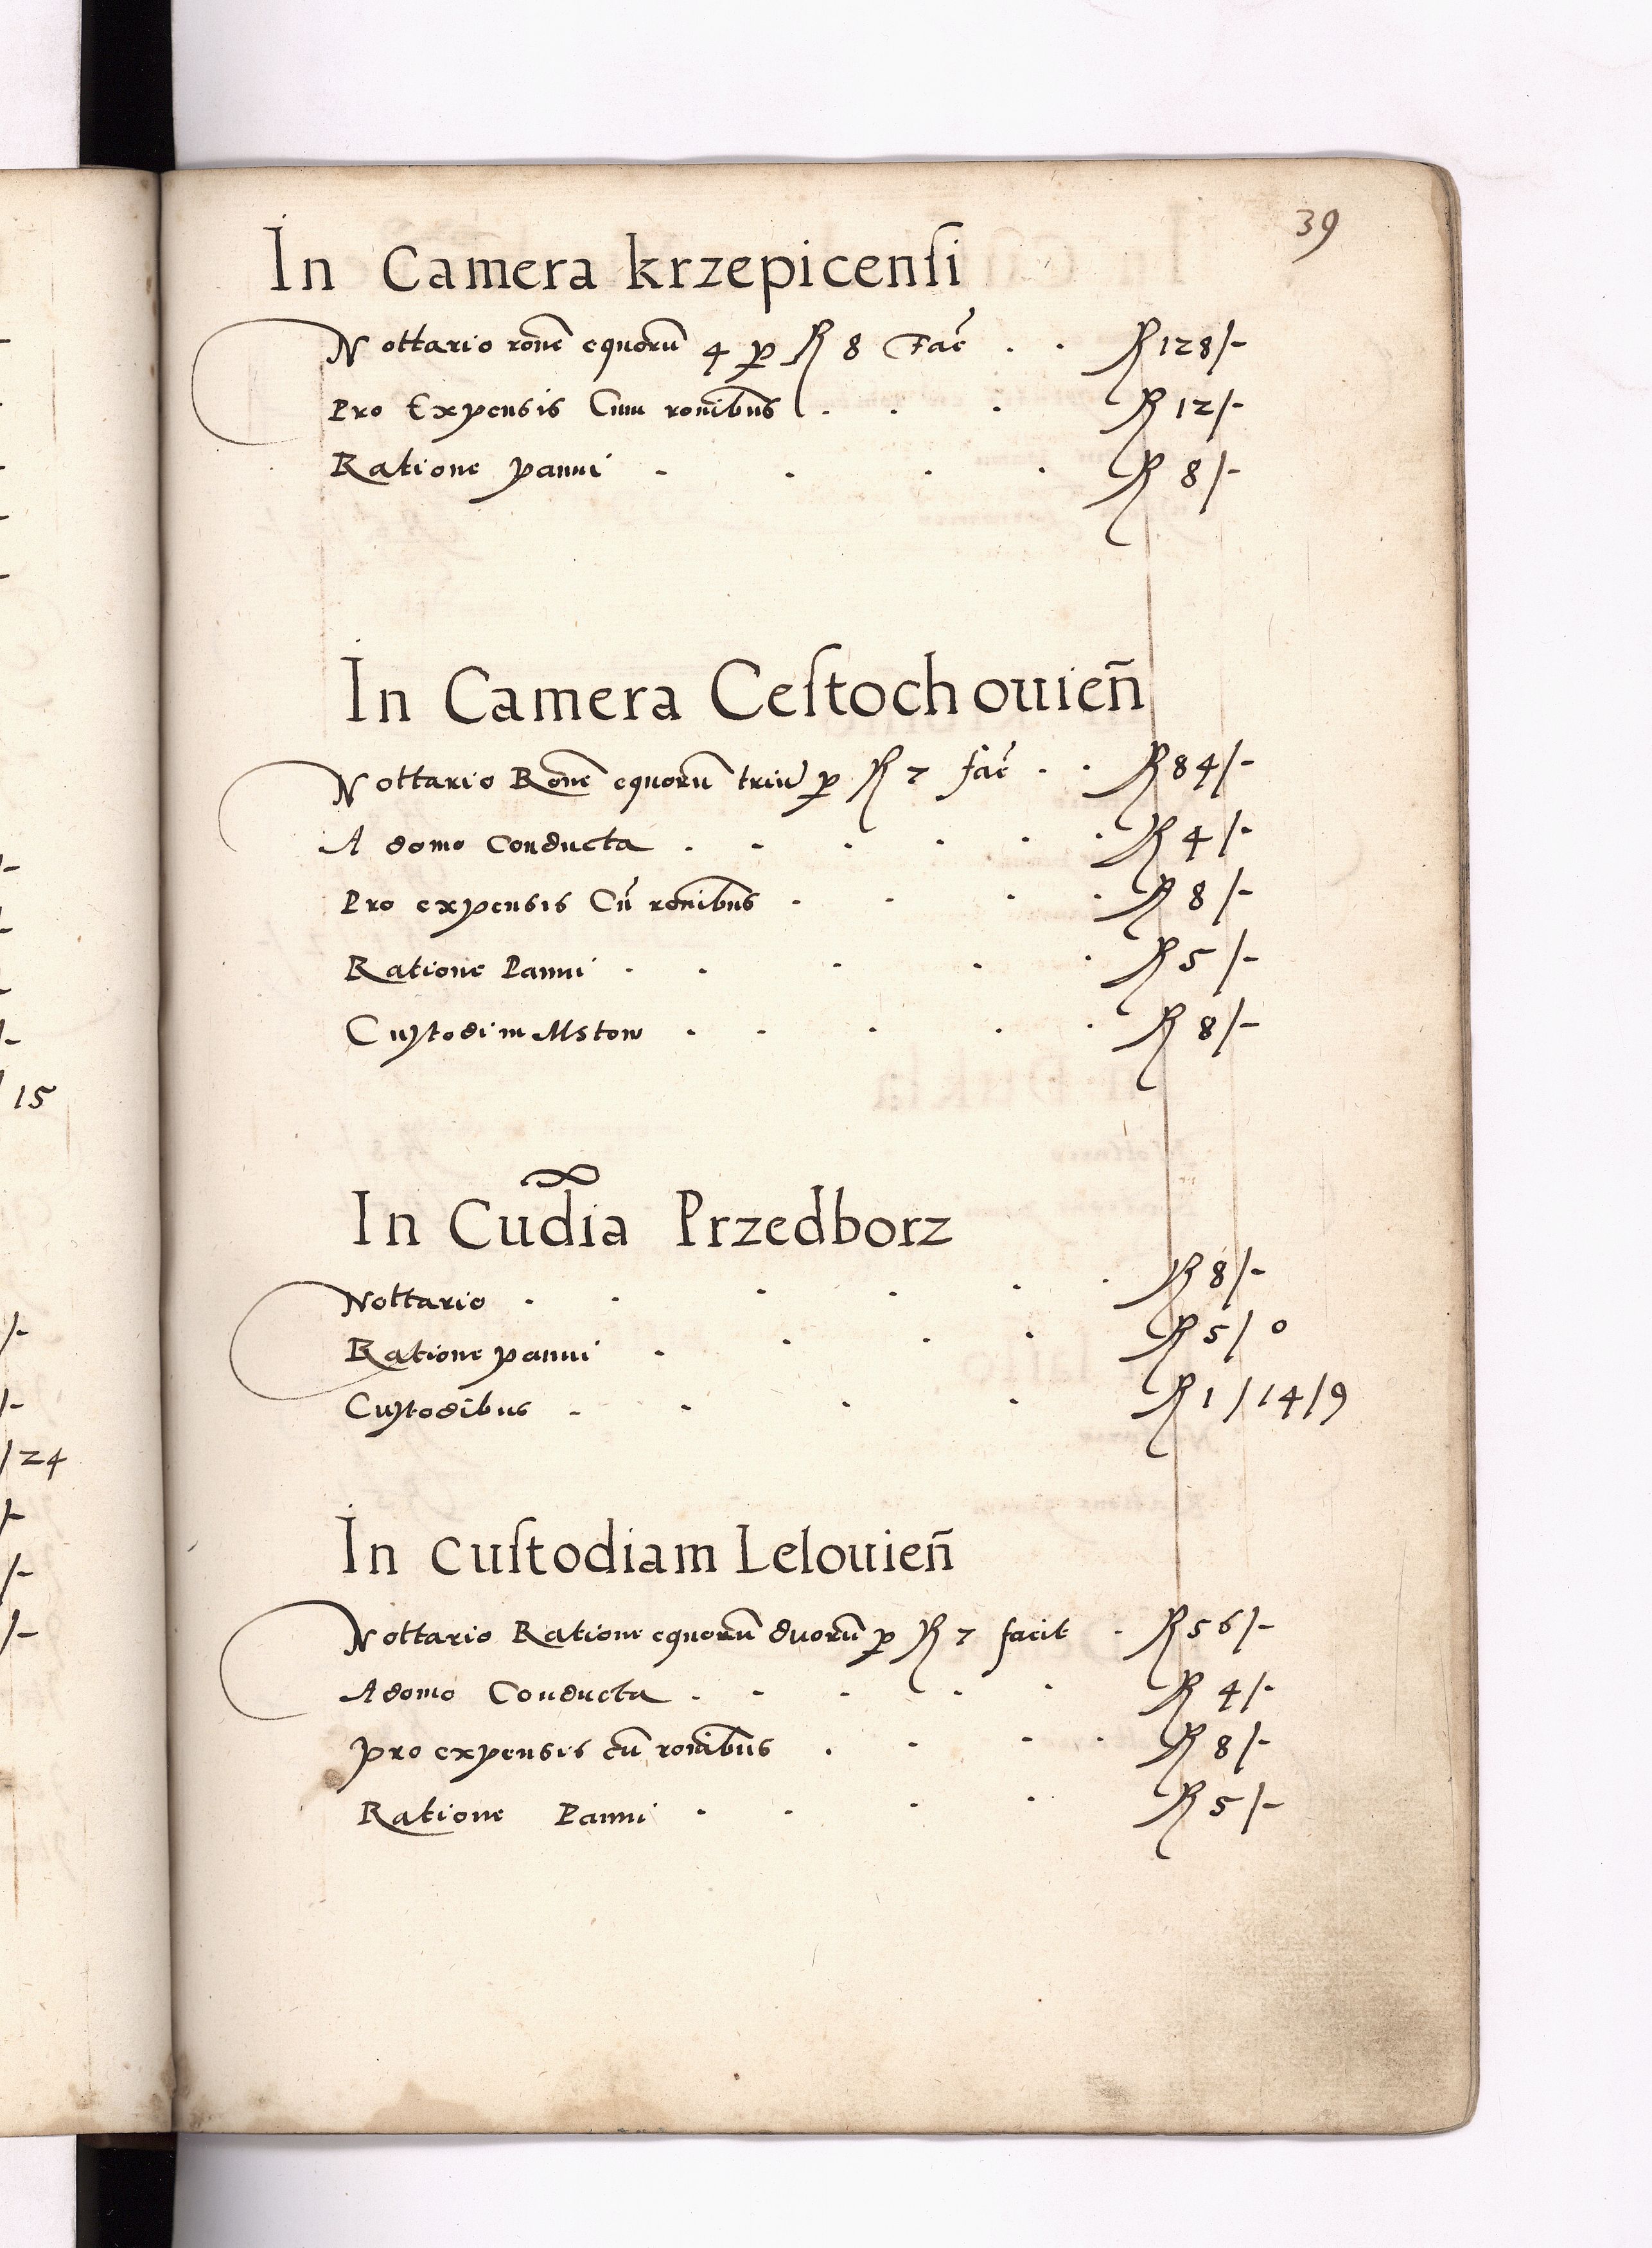 39
In Camera krzepicenſi
Nottario ronẽ equorũ 4 ꝑ R 8 Facͤ . . R 128/-
Pro Expensis Cum ronibus . . . R 12/-
Ratione panni . . . . R 8/-
In Camera Ceſtochouieñ
Nottario Ronẽ equorũ triũ ꝑ R 7 facͤ . . R 84/-
A domo Conducta . . . . . . R 4/-
Pro expensis Cũ ronibus . . . . R 8/-
Ratione Panni . . . . . R 5/-
Custodi in Mstow . . . . . R 8/-
In Cud̃ia Przedborz
Nottario . . . . . . R 8/-
Ratione panni . . . . R 5/0
Custodibus . . . . R 1/14/9
In Cuſtodiam Lelouieñ
Nottario Ratione equorũ duorũ ꝑ R 7 facit . R 56/-
A domo Conducta . . . . . R 4/-
pro expensis cũ ronibus . . . . R 8/-
Ratione Panni . . . . R 5/-
15
/24